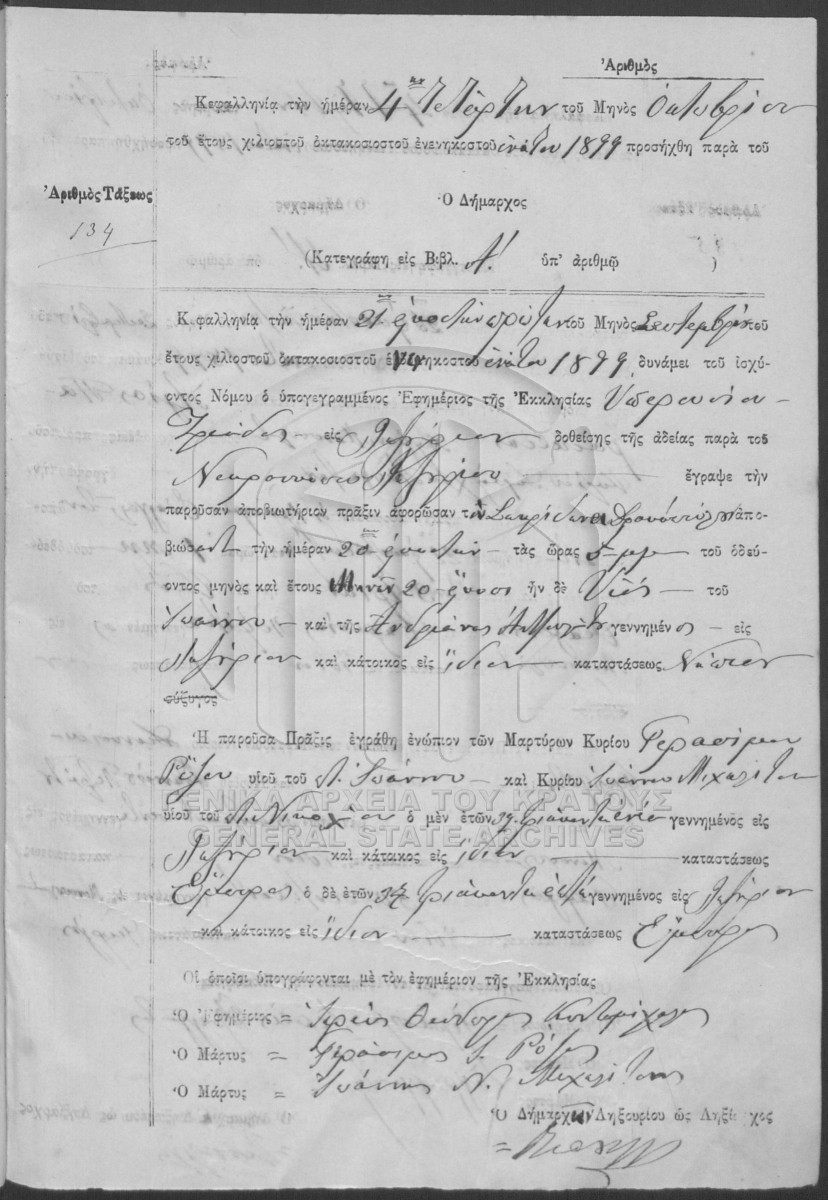 Ἀριθμὸς
Κεφαλληνία τὴν ἡμέραν 4 τετάρτην τοῦ Μηνὸς Ὀκτωβρίου
τοῦ ἔτους χιλιοστοῦ ὀκτακοσιοστοῦ ἐνενηκοστοῦ ἐνάτου 1899 προσήχθη παρὰ τοῦ
Ἀριθμὸς Τάξεως
134
Ὁ Δήμαρχος
(Κατεγράφη εἰς Βιβλ. Α! ὑπ' ἀριθμῷ )
Κεφαλληνία τὴν ἡμέραν 21 εἰκοστὴν πρώτην τοῦ Μηνὸς Σεπτεμβρίου τοῦ
ἔτους χιλιοστοῦ ὀκτακοσιοστοῦ ἐνενηκοστοῦ ἐνάτου 1899 δυνάμει τοῦ ἰσχύ-
οντος Νόμου ὁ ὑπογεγραμμένος Ἐφημέριος τῆς Ἐκκλησίας Ὑπερουσίου
Τριάδος εἰς Ληξούριον δοθείσης τῆς ἀδείας παρὰ τοῦ
Ληξουρίου ἔγραψε τὴν
παροῦσαν ἀποβιωτήριον πρᾶξιν ἀφορῶσαν τὸν Σπυρίδωνα ἀπο-
βιώσαντ τὴν ἡμέραν 20 εἰκοστὴν τὰς ὥρας 5 μμ τοῦ ὁδεύ-
οντος μηνὸς καὶ ἔτους Μηνῶν 20 εἴκοσι ἦν δὲ Υἱός τοῦ
Ἰωάννου καὶ τῆς Ἀνδριάνας γεννημένος εἰς
Ληξούριον καὶ κάτοικος εἰς ἴδιον καταστάσεως Νήπιον
σύζυγος
Ἡ παροῦσα Πρᾶξις ἐγράφη ἐνώπιον τῶν Μαρτύρων Κυρίου Γερασίμου
Ρόζου υἱοῦ τοῦ Ἰωάννου καὶ Κυρίου Ἰωάννου Μιχαλίτση
υἱοῦ τοῦ Νικολάου ὁ μὲν ἐτῶν 39 τριάκοντα ἐννέα γεννημένος εἰς
ΓΕΝΙΚΑ ΑΡΧΕΙΑ ΤΟΥ ΚΡΑΤΟΥΣ
GENERAL STATE ARCHIVES
Ληξούριον καὶ κάτοικος εἰς ἴδιον καταστάσεως
Ἔμπορος ὁ δὲ ἐτῶν 37 τριάκοντα ἑπτὰ γεννημένος εἰς Ληξούριον
καὶ κάτοικος εἰς ἴδιον καταστάσεως Ἔμπορος
Οἱ ὁποῖοι ὑπογράφονται μὲ τὸν ἐφημέριον τῆς Ἐκκλησίας
Ὁ Ἐφημέριος = Ἱερεὺς Θεόδωρος Κοντομίχαλος
Ὁ Μάρτυς = Γεράσιμος Ι. Ρόζος
Ὁ Μάρτυς = Ἰωάννης Ν. Μιχαλίτσης
Ὁ Δήμαρχων Ληξουρίου ὡς Ληξίαρχος